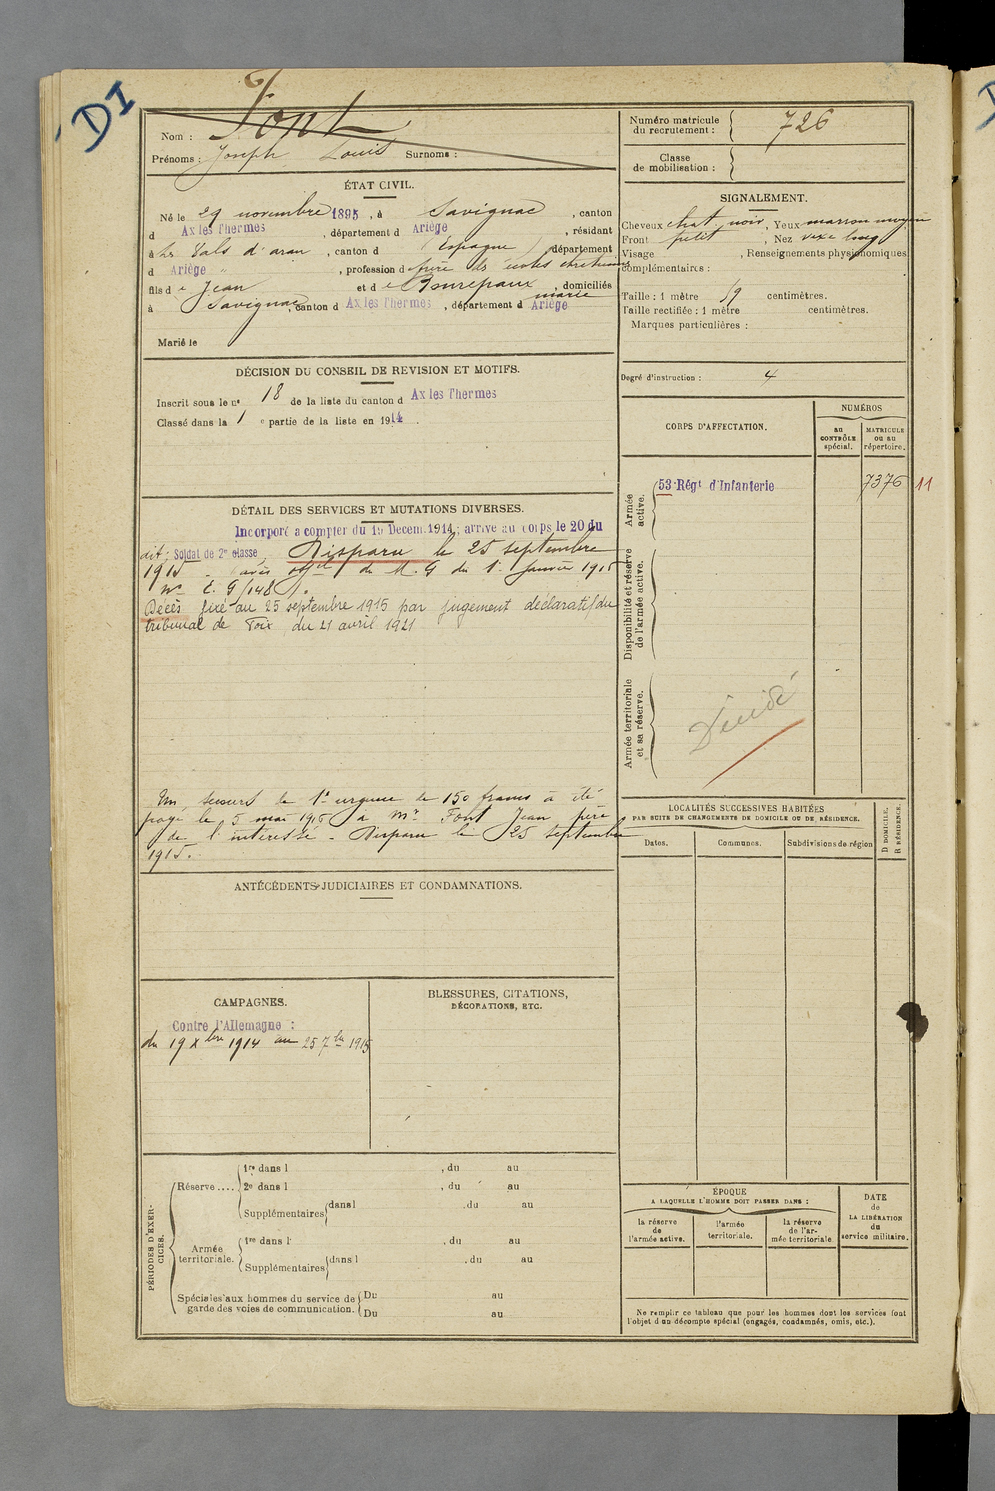 DI
Nom : Font
Prénoms : Joseph Louis Surnoms :
ÉTAT CIVIL.
Né le 29 novembre 1895, à Savignac, canton
d Ax les Thermes, département d Ariège, résidant
à Vals d'aran, canton d (Espagne) département
d Ariège, profession de frère des écoles chrétiennes
fils de Jean et de Bonrepaux marie, domiciliés
à Savignac, canton d Ax les Thermes, département d Ariège
Marié le
DÉCISION DU CONSEIL DE REVISION ET MOTIFS.
Inscrit sous le n° 18 de la liste du canton d Ax les Thermes
Classé dans la 1 e partie de la liste en 1914.
DÉTAIL DES SERVICES ET MUTATIONS DIVERSES.
Incorporé à compter du 19 Décem. 1914; arrivé au corps le 20 du
dit; Soldat de 2e classe. Disparu le 25 septembre
1915 avis offel du M. G du 1er Janvier 1916
No E. G/148
Décès fixé au 25 septembre 1915 par jugement déclaratif du
tribunal de Foix, du 21 avril 1921
Un secours de 1re urgence de 150 francs a été
payé le 5 mai 1916 à Mr Font Jean père
de l'intéressé - Disparu le 25 septembre
1915.
ANTÉCÉDENTS JUDICIAIRES ET CONDAMNATIONS.
CAMPAGNES.
Contre l'Allemagne :
du 19 Xbre 1914 au 25 7bre 1915
BLESSURES, CITATIONS,
DÉCORATIONS, ETC.
PÉRIODES D'EXERCICES.
Réserve .... 1re dans l , du au
2e dans l , du au
Supplémentaires dans l , du au
Armée territoriale. 1re dans l , du au
Supplémentaires dans l , du au
Spéciales aux hommes du service de garde des voies de communication. Du au
Du au
Numéro matricule du recrutement : 726
Classe de mobilisation :
SIGNALEMENT.
Cheveux chat noir, Yeux marron moyen
Front petit, Nez vexe long
Visage , Renseignements physionomiques
complémentaires :
Taille : 1 mètre 59 centimètres.
Taille rectifiée : 1 mètre centimètres.
Marques particulières :
Degré d'instruction : 4
CORPS D'AFFECTATION.
NUMÉROS
au CONTRÔLE spécial.
MATRICULE ou au répertoire.
Armée active.
53 Régt d'Infanterie 7376 11
Disponibilité et réserve de l'armée active.
Armée territoriale et sa réserve.
Décédé
LOCALITÉS SUCCESSIVES HABITÉES
PAR SUITE DE CHANGEMENTS DE DOMICILE OU DE RÉSIDENCE.
Dates. Communes. Subdivisions de région
D DOMICILE.
R RÉSIDENCE.
ÉPOQUE
A LAQUELLE L'HOMME DOIT PASSER DANS :
la réserve de l'armée active.
l'armée territoriale.
la réserve de l'armée territoriale
DATE de LA LIBÉRATION du service militaire.
Ne remplir ce tableau que pour les hommes dont les services font
l'objet d'un décompte spécial (engagés, condamnés, omis, etc.).